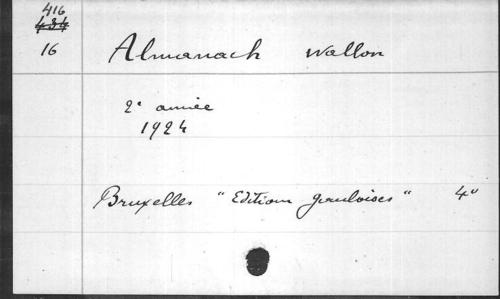 416
434
16 Almanach wallon
2e année
1924
Bruxelles "Editions gauloises" 4°